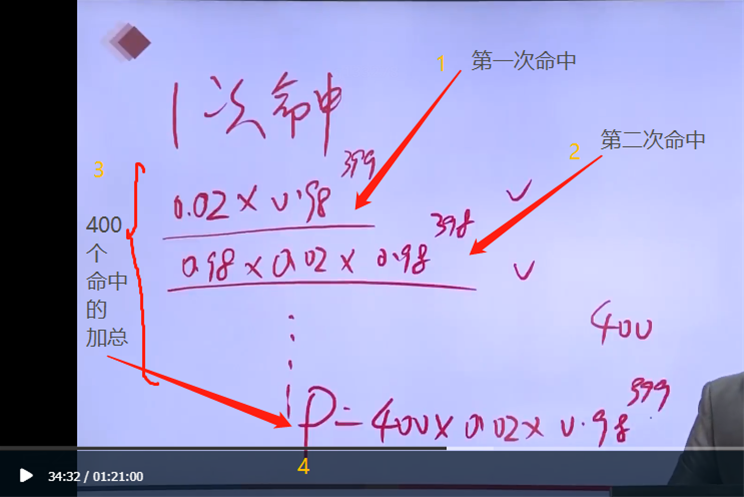 1 第一次命中
1次命中
2 第二次命中
3
0.02×0.98^399 ✓
400
个
命中
的
加总
0.98×0.02×0.98^398 ✓
400
P=400×0.02×0.98^399
4
34:32 / 01:21:00